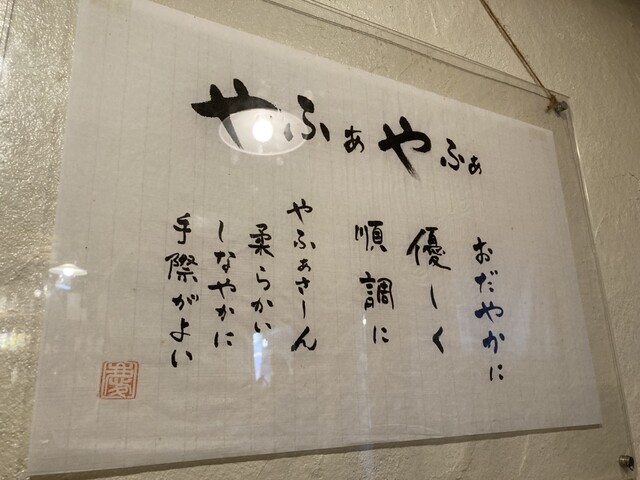 やふぁやふぁ
おだやかに
優しく
順調に
やふぁさーん
柔らかい
しなやかに
手際がよい